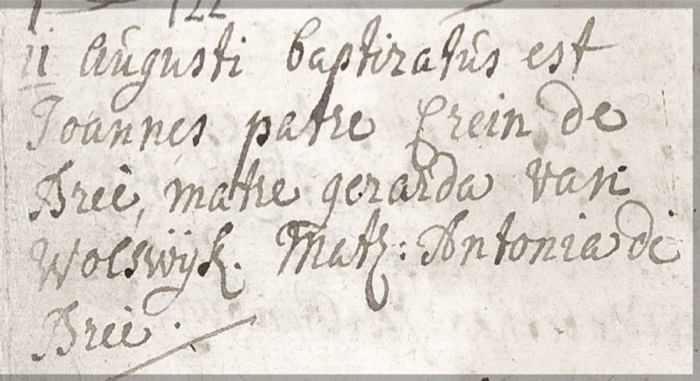 122
ii Augusti baptizatus est
Joannes patre Crein de
Bree, matre gerarda van
Wolswijk. Matr: Antonia de
Bree.